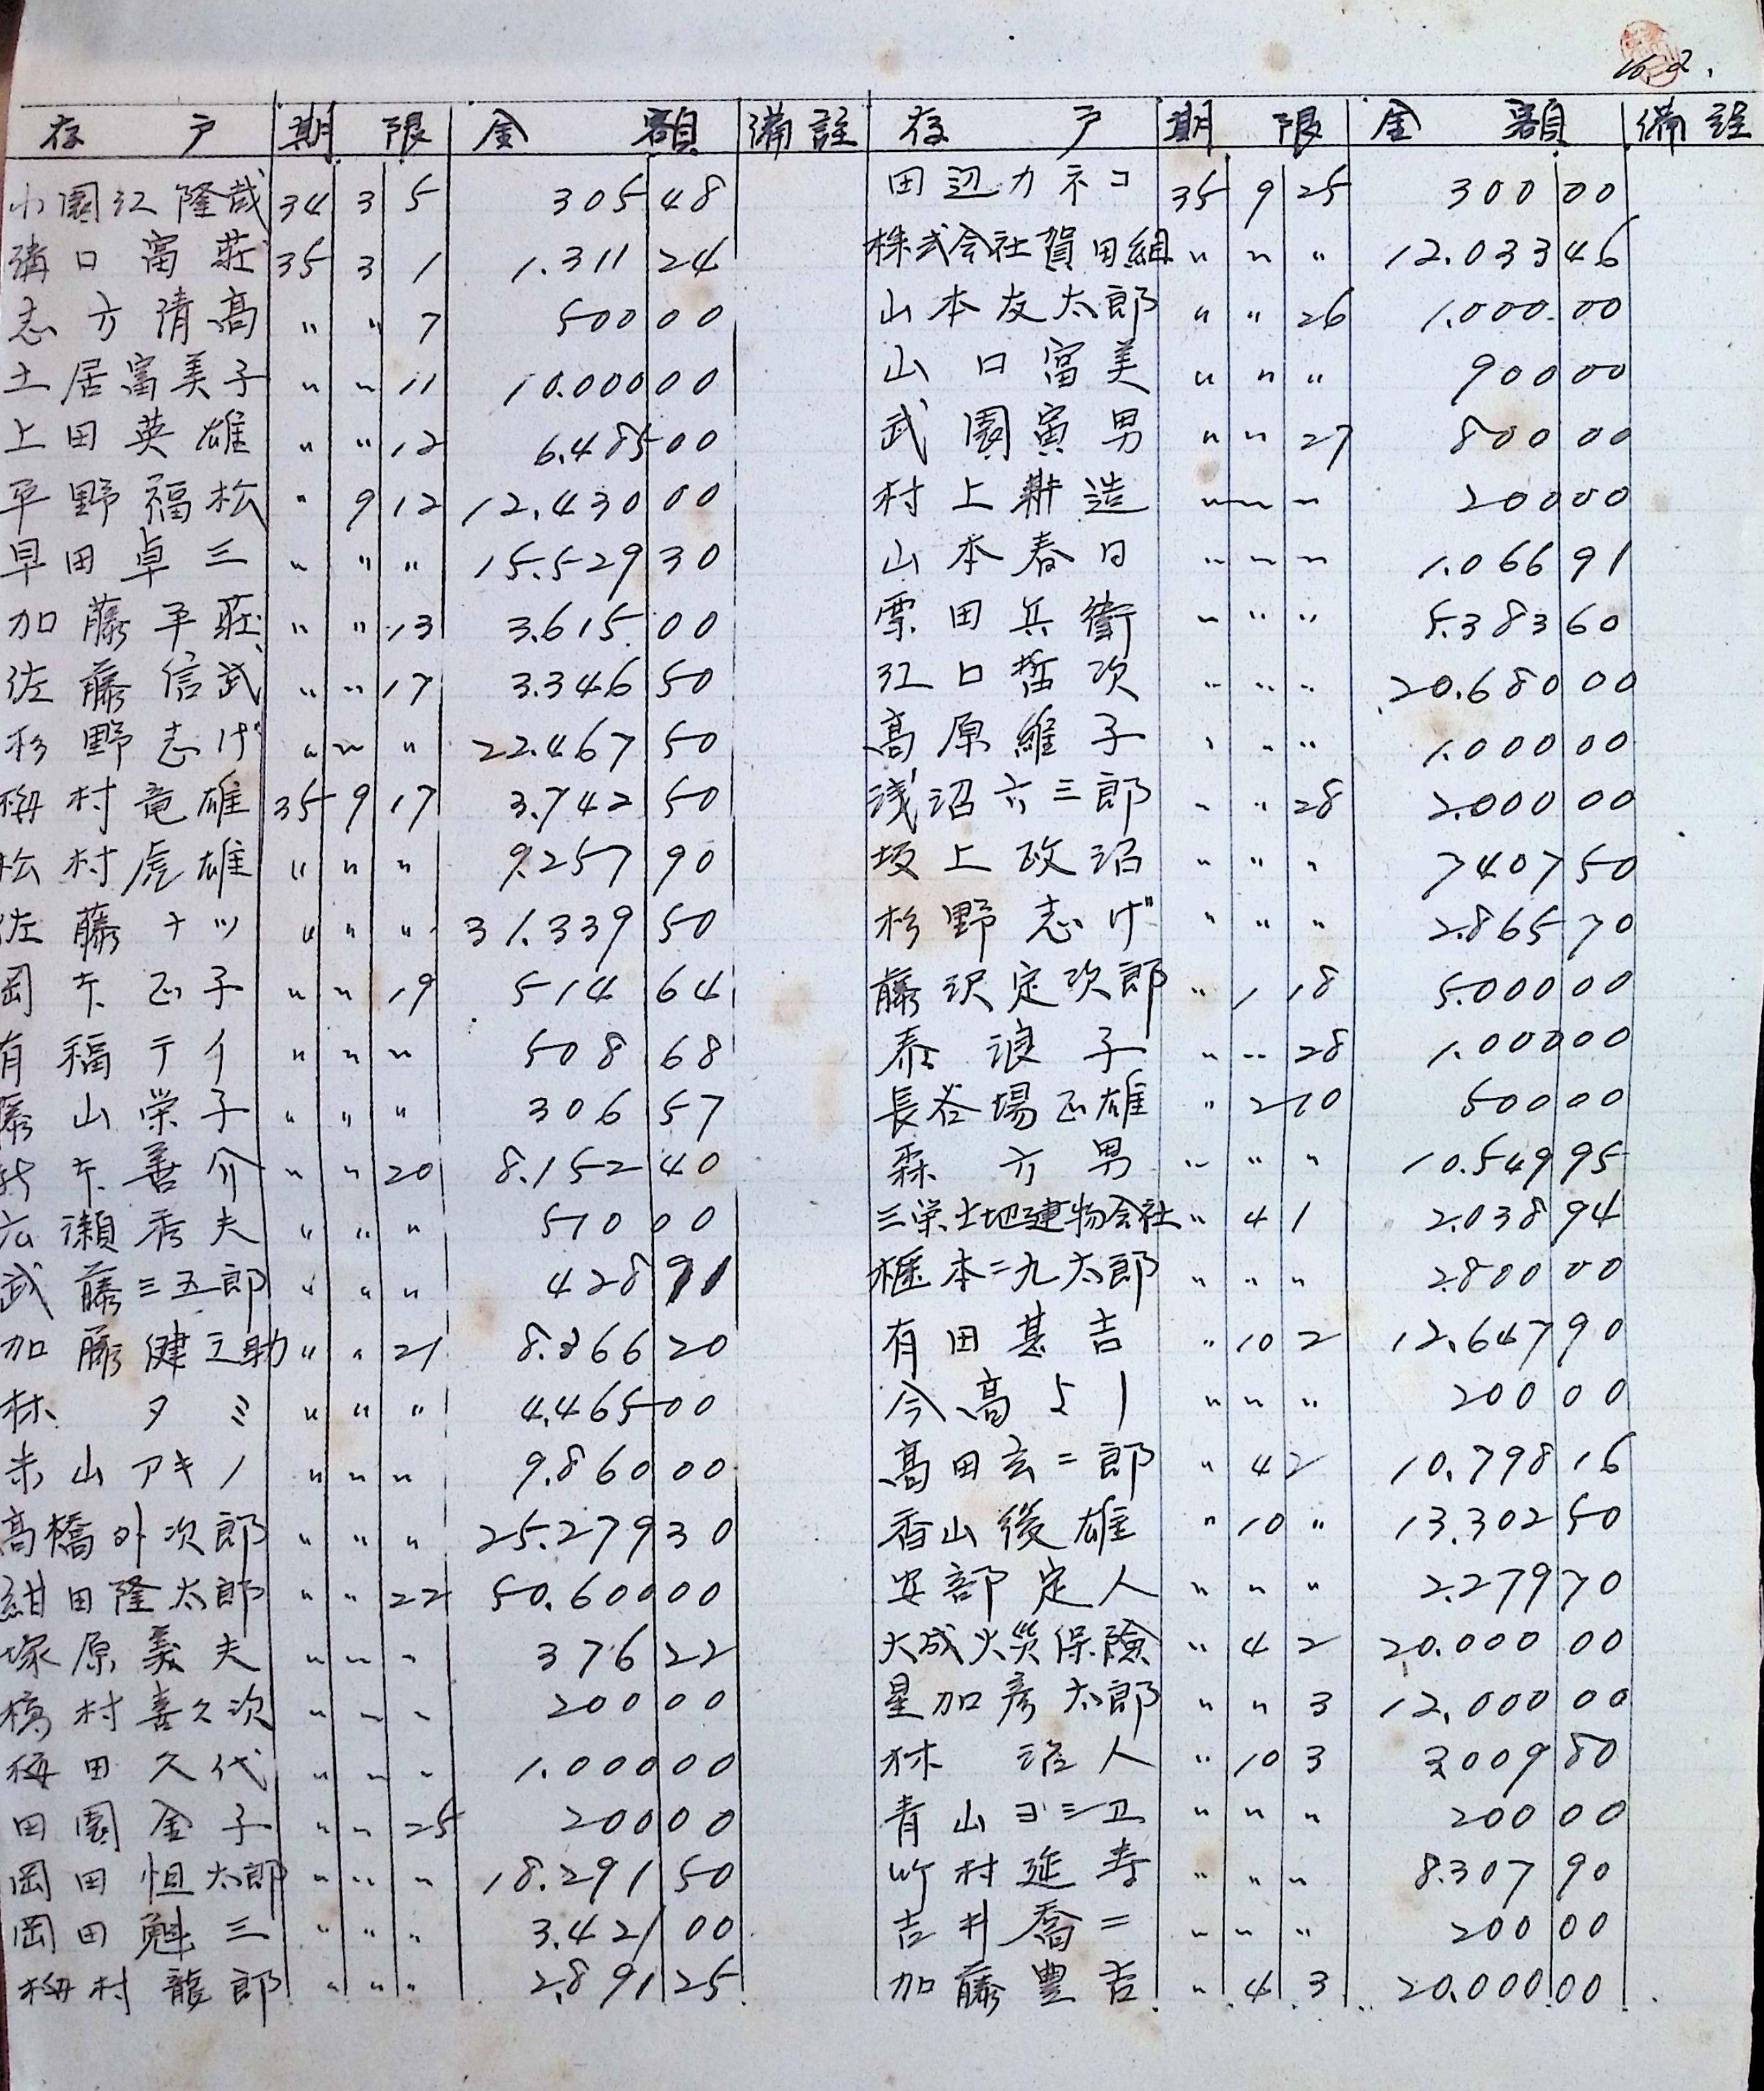 16.2.
存戸 期限 金額 備註 存戸 期限 金額 備註
小園江隆哉 34 3 5 305 48
溝口富荘 35 3 1 1.311 24
志方清高 〃 〃 7 500 00
土居富美子 〃 〃 11 10.000 00
上田英雄 〃 〃 12 6.485 00
平野福松 〃 9 12 12.430 00
早田卓三 〃 〃 〃 15.529 30
加藤平荘 〃 〃 13 3.615 00
佐藤信武 〃 〃 17 3.346 50
杉野志げ 〃 〃 〃 22.467 50
梅村竜雄 35 9 17 3.742 50
松村虎雄 〃 〃 〃 9.257 90
佐藤ナツ 〃 〃 〃 31.339 50
岡本正子 〃 〃 19 514 64
有福テイ 〃 〃 〃 508 68
藤山栄子 〃 〃 〃 306 57
本善介 〃 〃 20 8.152 40
広瀬秀夫 〃 〃 〃 510 00
武藤三五郎 〃 〃 〃 428 91
加藤健之助 〃 〃 21 8.366 20
林タミ 〃 〃 〃 4.465 00
米山アキノ 〃 〃 〃 9.860 00
高橋外次郎 〃 〃 〃 25.279 30
紺田隆太郎 〃 〃 22 50.600 00
塚原義夫 〃 〃 〃 376 22
村喜久次 〃 〃 〃 200 00
梅田久代 〃 〃 〃 1.000 00
田園金子 〃 〃 25 200 00
岡田恒太郎 〃 〃 〃 18.291 50
岡田魁三 〃 〃 〃 3.421 00
梅村龍郎 〃 〃 〃 2.891 25
田辺カネコ 35 9 25 300 00
株式会社賀田組 〃 〃 〃 12.033 46
山本友太郎 〃 〃 26 1.000 00
山口富美 〃 〃 〃 900 00
武園寅男 〃 〃 27 800 00
村上耕造 〃 〃 〃 200 00
山本春日 〃 〃 〃 1.066 91
栗田兵衛 〃 〃 〃 5.383 60
江口哲次 〃 〃 〃 20.680 00
高原維子 〃 〃 〃 1.000 00
浅沼六三郎 〃 〃 28 2.000 00
坂上政治 〃 〃 〃 7407 50
杉野志げ 〃 〃 〃 2.865 70
藤沢定次郎 〃 1 18 5.000 00
泰浪子 〃 〃 28 1.000 00
長谷場正雄 〃 2 10 500 00
森六男 〃 〃 〃 10.549 95
三栄土地建物会社 〃 4 1 2.038 94
榧本二九太郎 〃 〃 〃 2.800 00
有田甚吉 〃 10 2 12.647 90
今高より 〃 〃 〃 200 00
高田玄二郎 〃 4 2 10.798 16
香山俊雄 〃 10 〃 13.302 50
安部定人 〃 〃 〃 2.279 70
大成火災保険 〃 4 2 20.000 00
星加彦太郎 〃 〃 3 12.000 00
林治人 〃 10 3 3.009 80
青山ヨシヱ 〃 〃 〃 200 00
竹村延寿 〃 〃 〃 8.307 90
吉井喬二 〃 〃 〃 200 00
加藤豊吉 〃 4 3 20.000 00